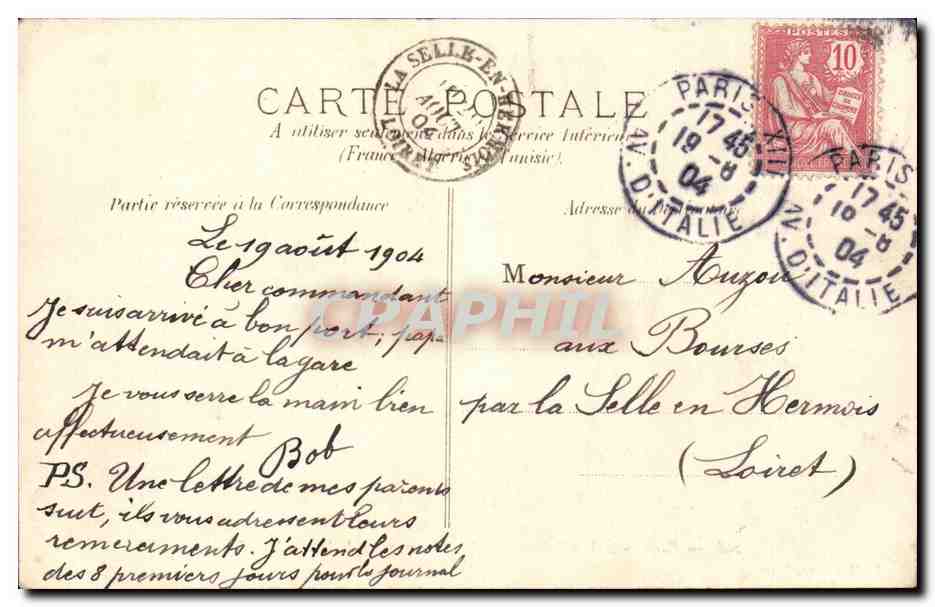 CARTE POSTALE
A utiliser seulement dans le Service Intérieur
(France, Algérie, Tunisie).
LA SELLE-EN-HERMOIS
LOIRET
AOUT
04
POSTES
10
PARIS XIII
17 45
19 -8
04
AV. D'ITALIE
PARIS
17 45
19 -8
04
AV. D'ITALIE
Partie réservée à la Correspondance
Le 19 août 1904
Cher commandant
Je suis arrivé à bon port; papa
m'attendait à la gare
Je vous serre la main bien
affectueusement
Bob
PS. Une lettre de mes parents
suit, ils vous adressent leurs
remerciments. J'attend les notes
des 8 premiers jours pour le journal
Adresse du Destinataire
Monsieur Auzou
aux Bourses
par la Selle en Hermois
(Loiret)
CPAPHIL